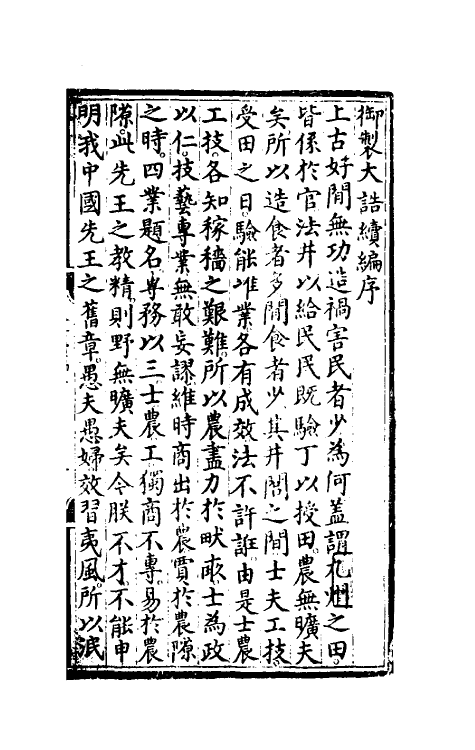 御製大誥續編序
上古好閒無功造禍害民者少為何蓋謂九州之田
皆係於官法井以給民民既驗丁以授田農無曠夫
矣所以造食者多閒食者少其井閭之間士夫工技
受田之日驗能准業各有成效法不許誑由是士農
工技各知稼穡之艱難所以農盡力於畎畝士為政
以仁技藝專業無敢妄謬維時商出於農賈於農隙
之時四業題名專務以三士農工獨商不專易於農
隙此先王之教精則野無曠夫矣今朕不才不能申
明我中國先王之舊章愚夫愚婦效習夷風所以泯